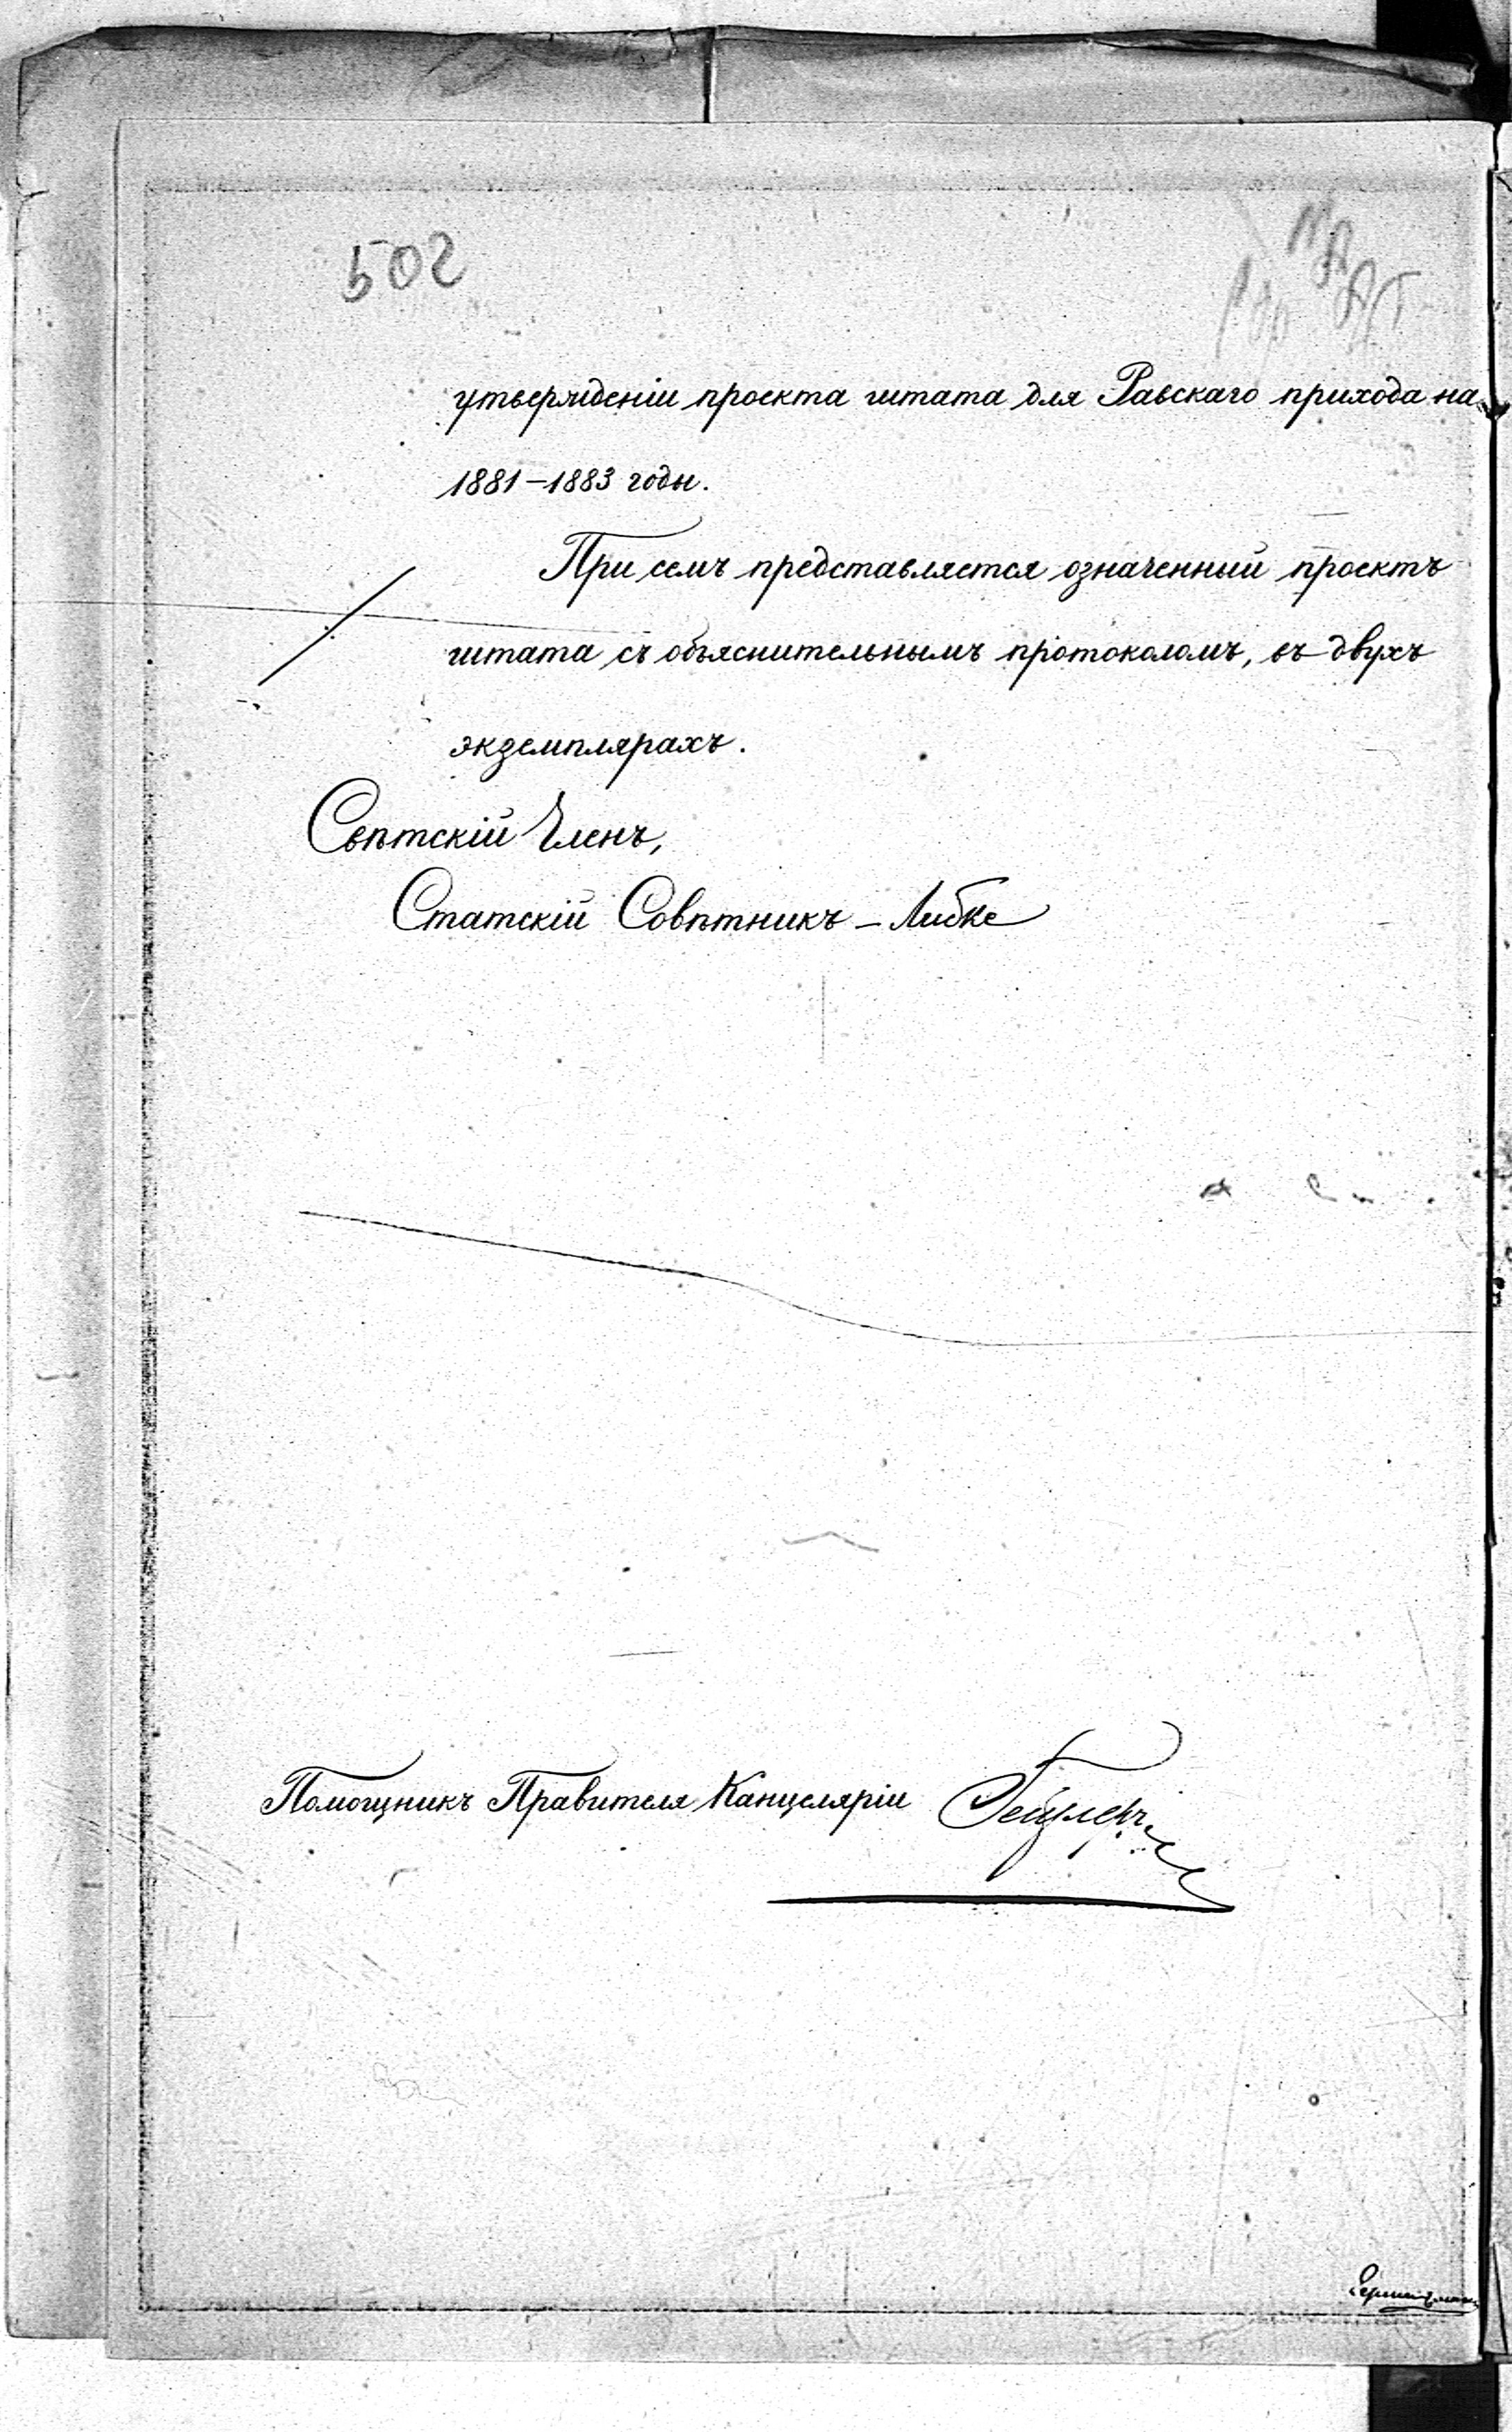 502
утвержденіи проекта штата для Равскаго прихода на
1881–1883 годы.
При семъ представляется означенный проектъ
штата съ объяснительнымъ протоколомъ, въ двухъ
экземплярахъ.
Свѣтскій Членъ,
Статскій Совѣтникъ – Либке
Помощникъ Правителя Канцеляріи